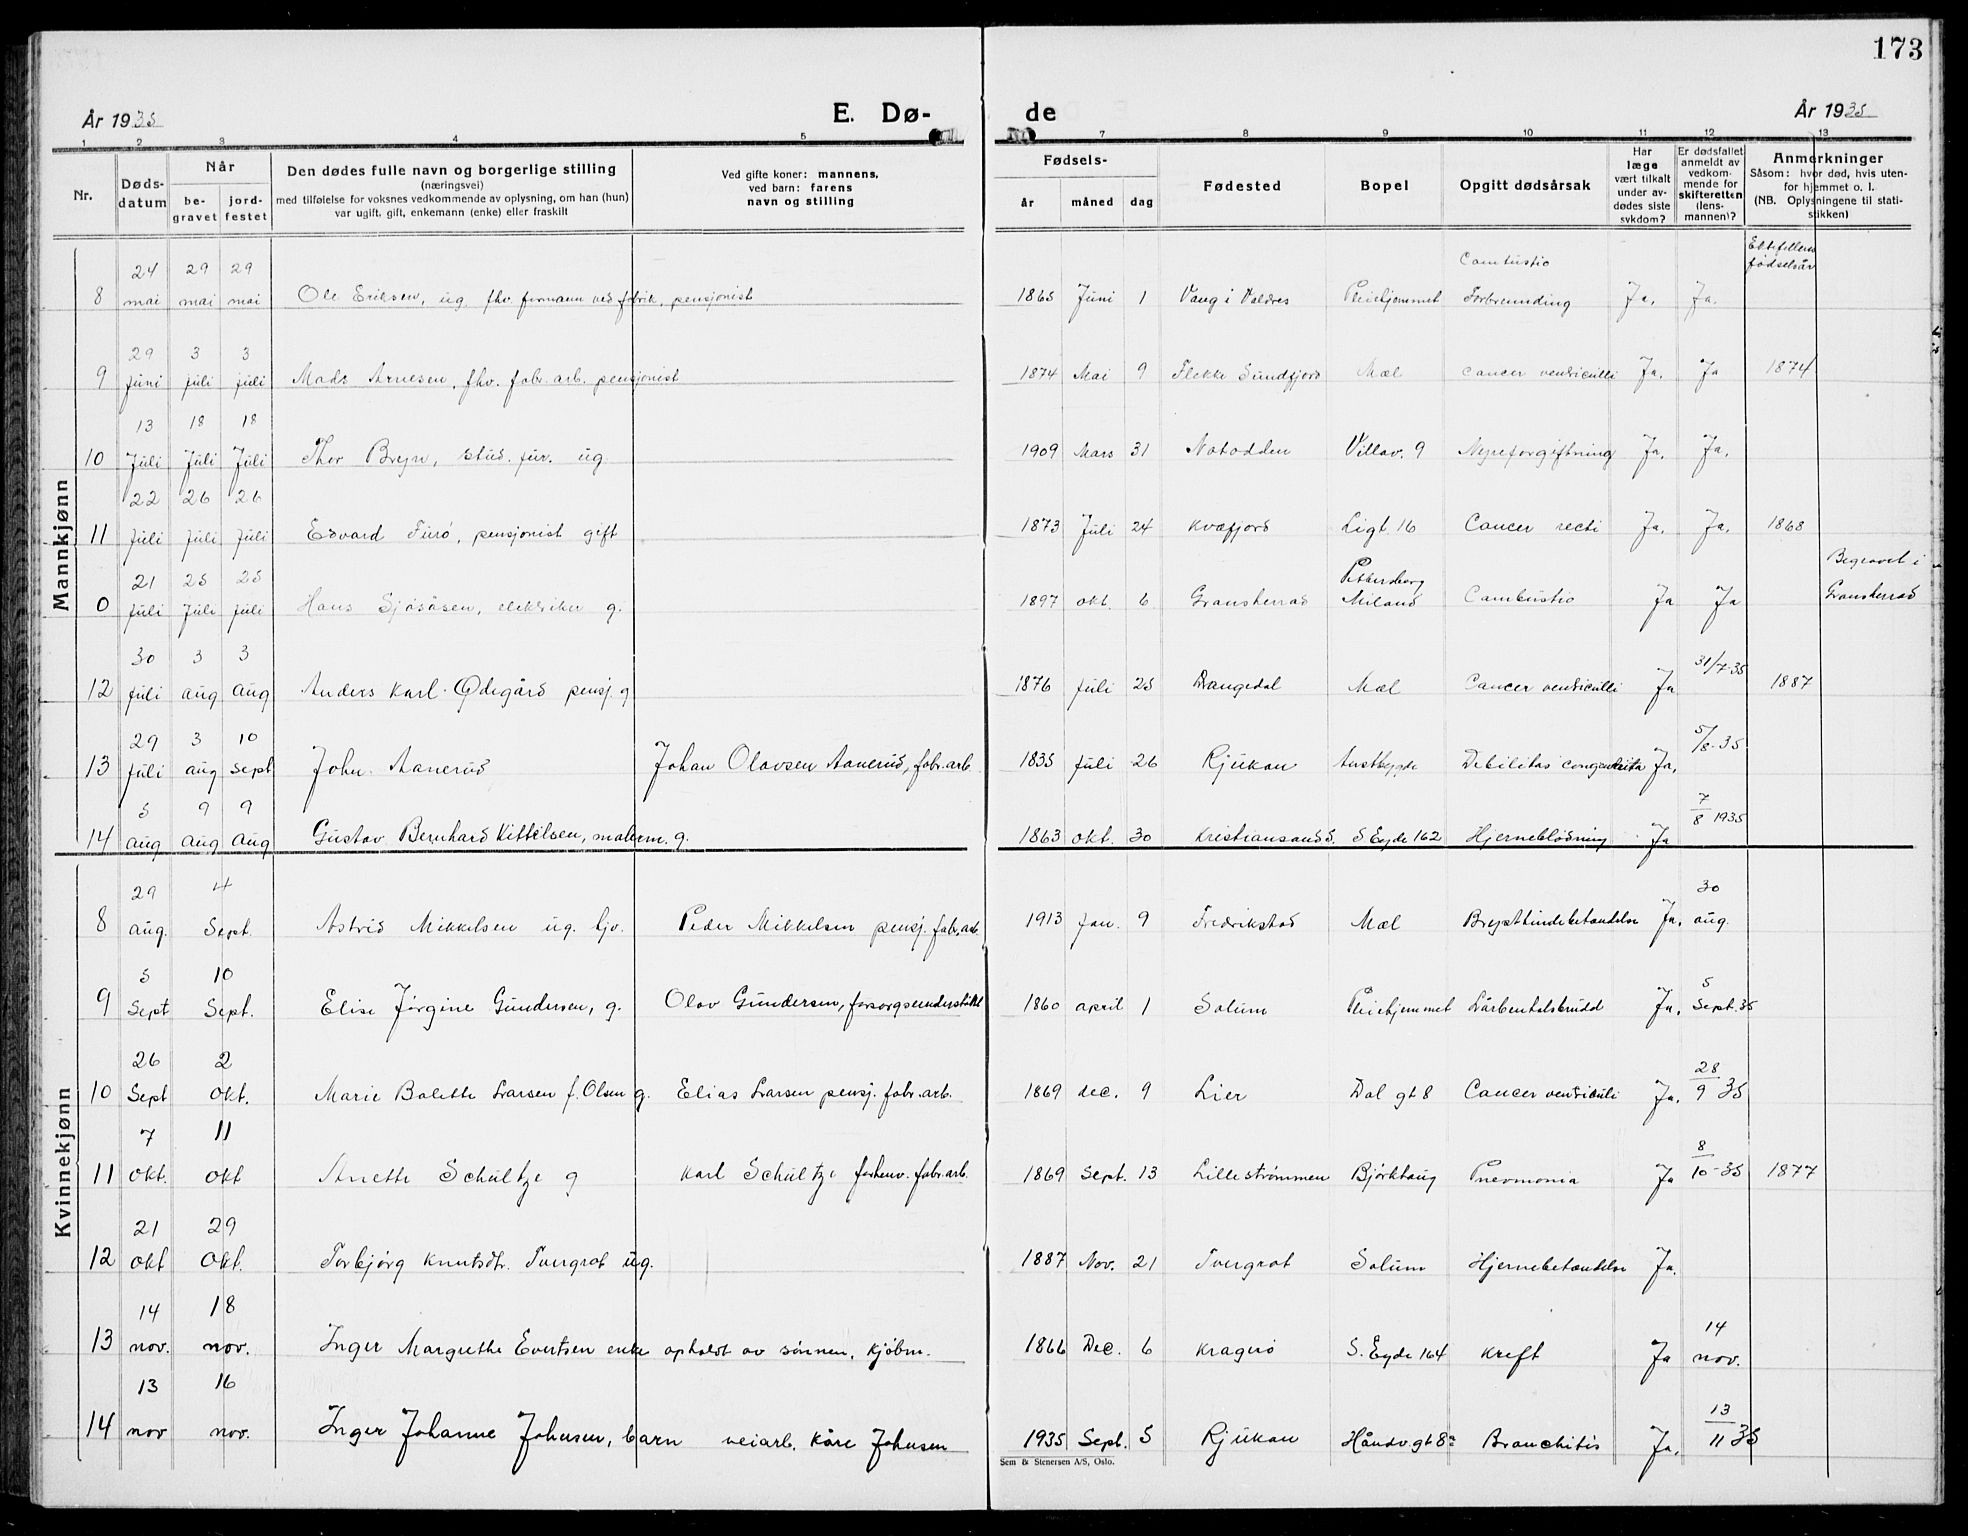 173
År 1935 E. Dø- de År 1935
1 2 3 4 5 7 8 9 10 11 12 13
Nr.
Døds-
datum
Når
be-
gravet
jord-
festet
Den dødes fulle navn og borgerlige stilling
(næringsvei)
med tilføielse for voksnes vedkommende av oplysning, om han (hun)
var ugift, gift, enkemann (enke) eller fraskilt
Ved gifte koner: mannens,
ved barn: farens
navn og stilling
Fødsels-
år måned dag
Fødested
Bopel
Opgitt dødsårsak
Har
læge
vært tilkalt
under av-
dødes siste
sykdom?
Er dødsfallet
anmeldt av
vedkom-
mende for
skifteretten
(lens-
mannen)?
Anmerkninger
Såsom: hvor død, hvis uten-
for hjemmet o. l.
(NB. Oplysningene til stati-
stikken)
Ektefellens
fødselsår
Mannkjønn
24 29 29 Combustio
8 mai mai mai Ole Eriksen, ug. fhv. formann ved fabrik, pensjonist 1865 Juni 1 Vang i Valdres Pleiehjemmet Forbrenning Ja. Ja.
29 3 3
9 juni juli juli Mads Arnesen, fhv. fabr. arb. pensjonist 1874 Mai 9 Flekke Sundfjord Mæl Cancer ventriculli Ja. Ja 1874
13 18 18
10 Juli Juli Juli Thor Bryn, stud. jur. ug 1909 Mars 31 Notodden Villav. 9 Nyreforgiftning Ja. Ja.
22 26 26
11 juli juli juli Edvard Furø, pensjonist gift 1873 Juli 24 Kvæfjord Ligt. 16 Cancer recti Ja. Ja. 1868
21 25 25
0 juli Juli juli Hans Sjåsåsen, elektriker g. 1897 okt. 6 Gransherrad Miland Combustio Ja Ja
Begravet i
Gransherrad
30 3 3 31/7-35
12 juli aug aug Anders Karl Ødegård pensj. g 1876 juli 25 Drangedal Mæl Cancer ventriculli Ja 1887
29 3 10 5/8-35
13 juli aug sept John Aanerud Johan Olavsen Aanerud, fabr. arb. 1835 juli 26 Rjukan Austbygde Debilitas congenita Ja.
5 9 9 7/8 1935
14 aug aug aug Gustav Bernhard Kittilsen, malerm. g. 1863 okt. 30 Kristiansand S. S Eyde 162 Hjerneblødning Ja
Kvinnekjønn
29 4 30
8 aug. Sept. Astrid Mikkelsen ug. hjv. Peder Mikkelsen pensj. fabr. arb 1913 jan. 9 Fredrikstad Mæl Brysthindebetændelse Ja. aug.
5 10 5
9 Sept Sept. Elise Jørgine Gundersen, g. Olav Gundersen, forsorgsunderstøttet 1860 april 1 Solum Pleiehjemmet Lårbenhalsbrudd Ja. Sept. 35
26 2 28
10 Sept okt. Marie Bolette Larsen f. Olsen g. Elias Larsen pensj. fabr. arb. 1869 dec. 9 Lier Dal gt 8 Cancer ventriculi Ja. 9 35
7 11 8
11 okt. okt Anette Schultze g Karl Schultze forhenv. fabr. arb. 1869 Sept. 13 Lillestrømmen Bjørkhaug Pneumonia Ja 10-35 1877
21 29
12 okt okt. Torbjørg Knutsdtr. Tvergrot ug. 1887 Nov. 21 Tvergrot Solum Hjernebetændelse Ja.
14 18 14
13 nov. nov. Inger Margrethe Evertsen enke opholdt av sønnen, kjøbm. 1866 Dec. 6 Kragerø S. Eyde 164 Kreft Ja nov.
13 16 13
14 nov nov. Inger Johanne Johnsen, barn veiarb. Kåre Johnsen 1935 Sept. 5 Rjukan Håndv gt 8 Bronchitis Ja. 11 35
Sem & Stenersen A/S, Oslo.